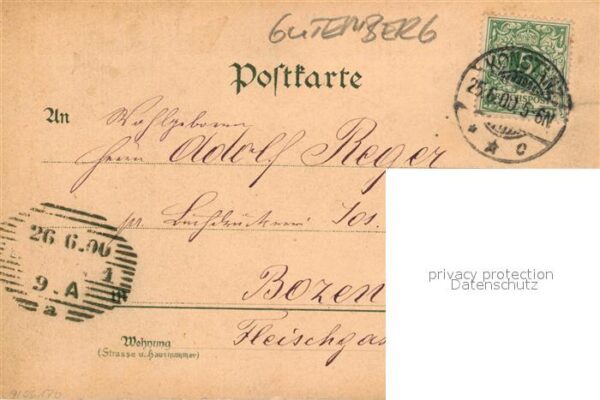 GUTEMBERG
Postkarte
KONSTANZ
25.6.00.5-6N
* * c
An Wohlgeboren
Herrn Adolf Reger
pr. Buchdruckerei Jos.
26 6.00
9.A 1
a
in Bozen
Fleischgas
Wohnung
(Strasse u. Hausnummer)
privacy protection
Datenschutz